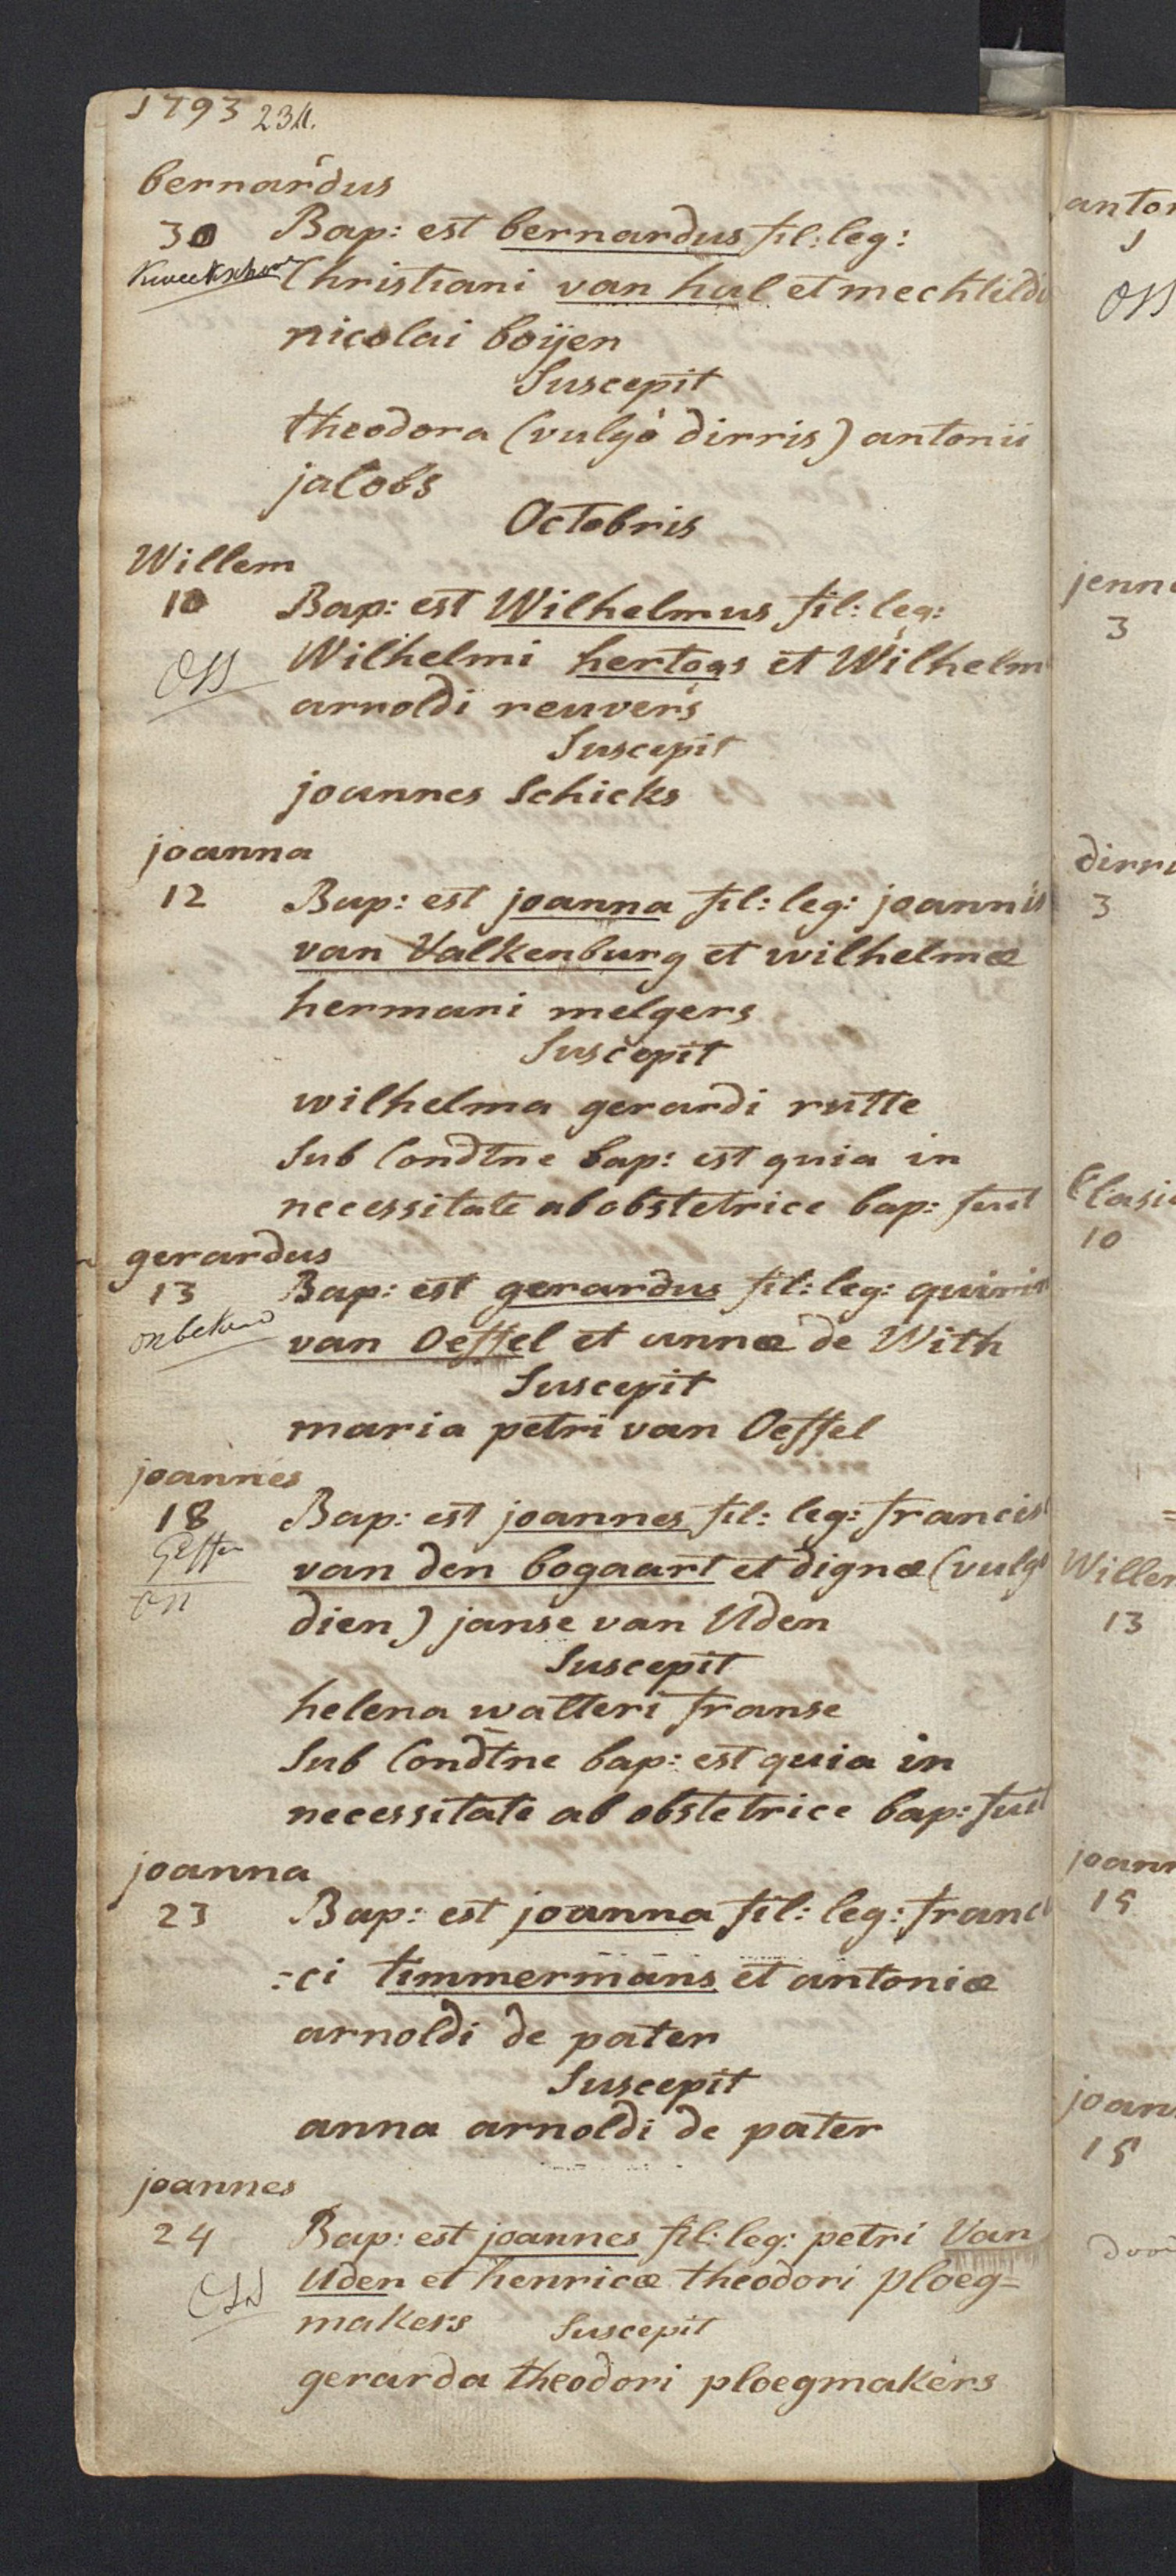 1793 234.
bernardus
30 Bap: est bernardus fil: leg:
Kweekschool Christiani van hul et mechtildi
nicolai boijen
Suscepit
theodora (vulgò dirris) antonii
jacobs
Octobris
Willem
10 Bap: est Wilhelmus fil: leg:
OSS Wilhelmi hertogs et Wilhelm
arnoldi reuvers
Suscepit
joannes Schicks
joanna
12 Bap: est joanna fil: leg: joannis
van Valkenburg et wilhelmæ
hermani melgers
Suscepit
wilhelma gerardi rutte
Sub Condtne bap: est quia in
necessitate ab obstetrice bap: fuit
gerardus
13 Bap: est gerardus fil: leg: quirin
onbekend van Oeffel et annæ de With
Suscepit
maria petri van Oeffel
joannes
18 Bap: est joannes fil: leg: francis
Geffen van den bogaart et dignæ (vulgo
dien) janse van Uden
Suscepit
helena walteri franse
Sub Condtne bap: est quia in
necessitate ab obstetrice bap: fuit
joanna
23 Bap: est joanna fil: leg: franc
:ci timmermans et antoniæ
arnoldi de pater
Suscepit
anna arnoldi de pater
joannes
24 Bap: est joannes fil: leg: petri Van
OSS Uden et henricæ theodori ploeg=
makers Suscepit
gerarda theodori ploegmakers
anto
1
OSS
jenn
3
dirri
3
Clasi
10
Willem
13
joann
15
joan
15
door